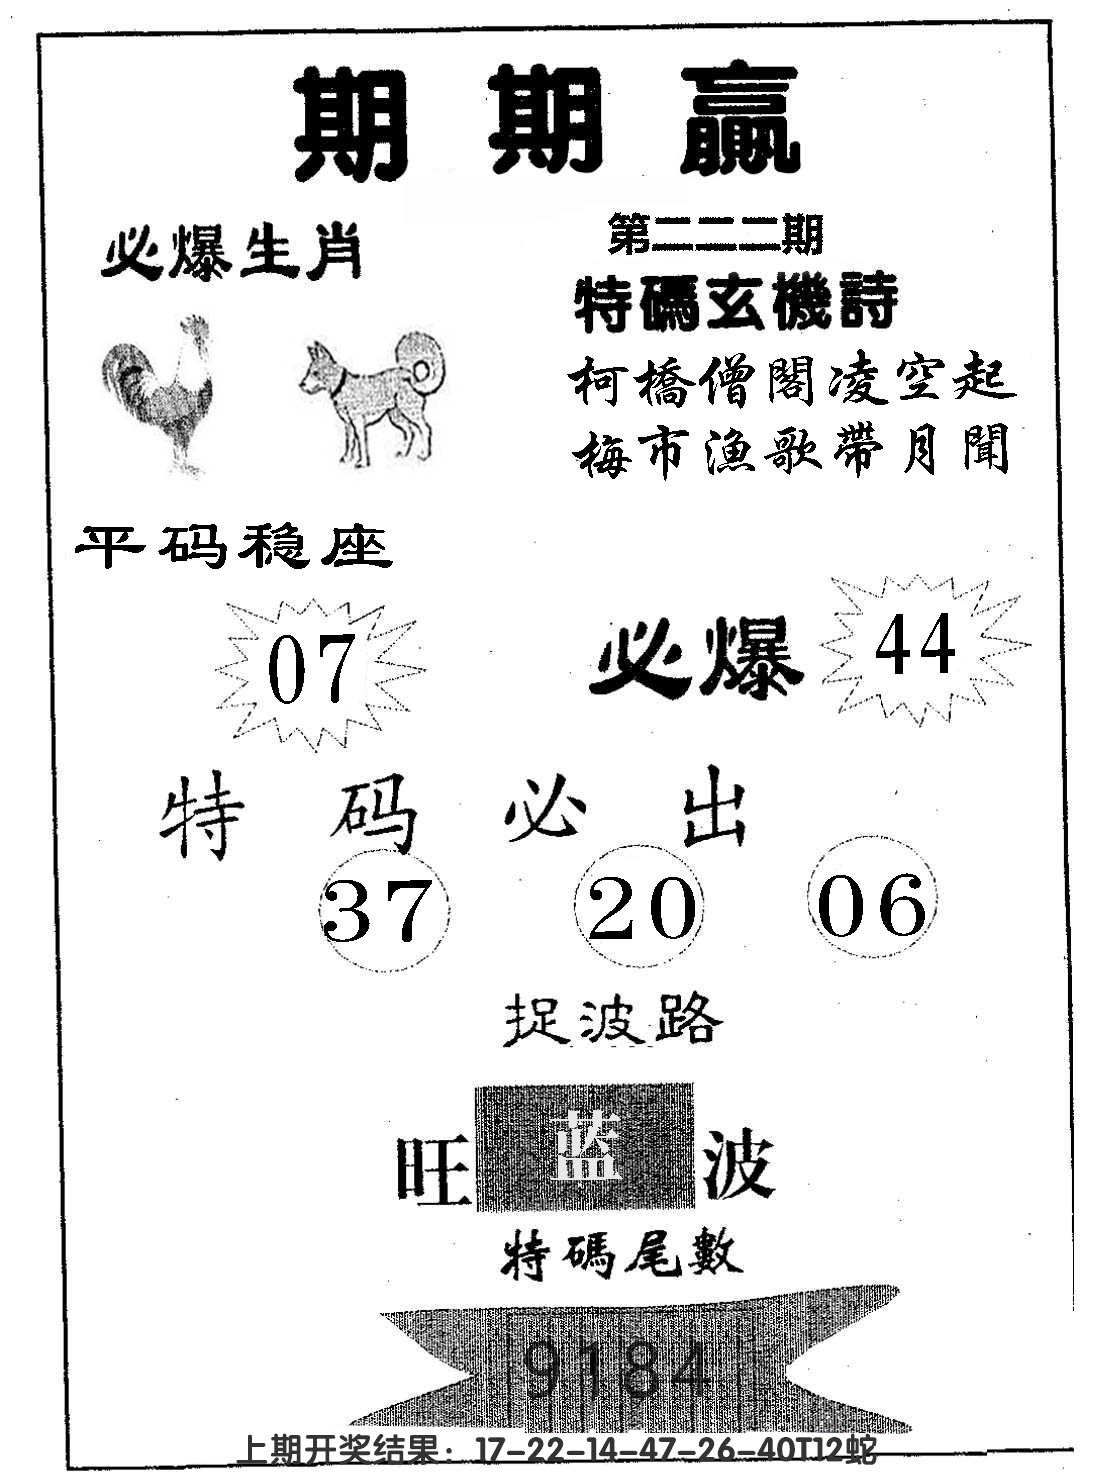 期期贏
必爆生肖
第二二二期
特碼玄機詩
柯橋僧閣凌空起
梅市漁歌帶月聞
平码稳座
07
必爆
44
特码必出
37 20 06
捉波路
旺蓝波
特碼尾數
9184
上期开奖结果：17-22-14-47-26-40T12蛇